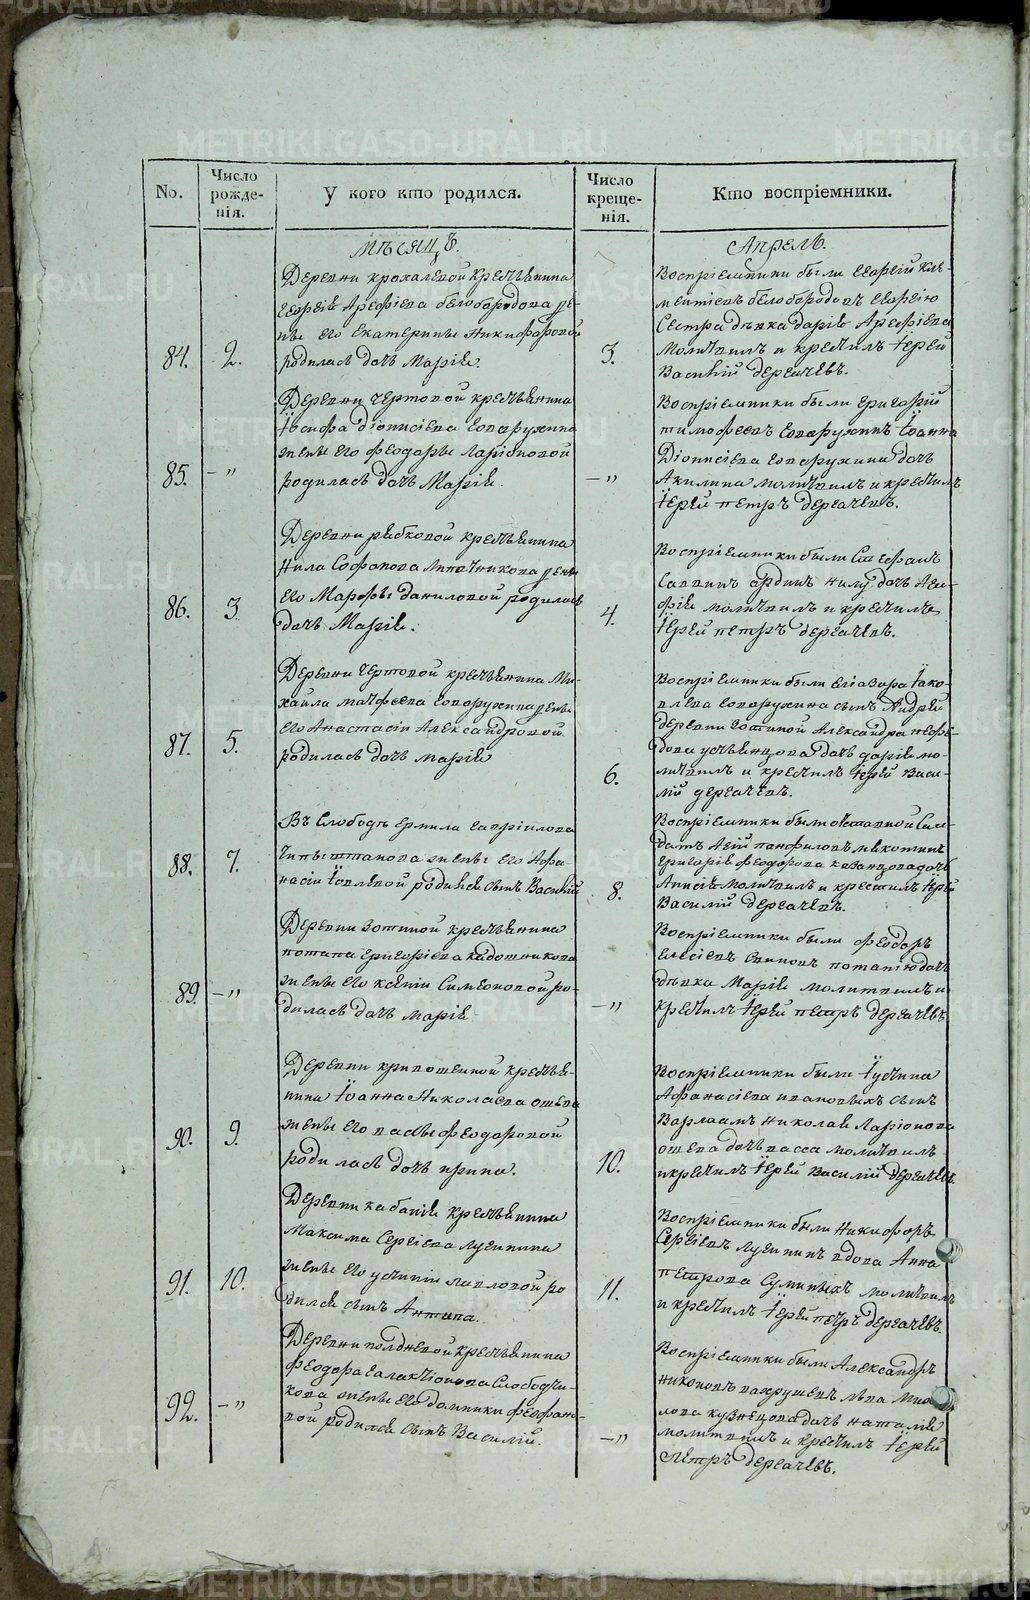 METRIKI.GASO-URAL.RU
No.
Число рожде-нія.
У кого кто родился.
Число креще-нія.
Кто воспріемники.
мѣсяцъ.
Апрель.
84.
2.
Деревни крохалевой крестьянина
Георгія Арефіева белобородова же-
ны его екатерины никифоровой
родилась дочь Марія.
3.
воспріемники были Георгій кли-
ментіевъ белобородовъ Георгію
Сестра дѣвка дарія Арефіева
молитвилъ и крестилъ Іерей
Василій дергачевъ.
85.
-"
Деревни чертовой крестьянина
Іосифа діонисіева Говорухина
жены его феодоры Ларіоновой
родилась дочь Марія.
-"
воспріемники были григорій
тимофеевъ Говорухинъ Іоанна
Діонисіева Говорухина дочь
Акилина молитвилъ и крестилъ
Іерей петръ дергачевъ.
86.
3.
Деревни рябковой крестьянина
Нила Софонова жены
его Марфы даниловой родилась
дочь Марія.
4.
воспріемники были Стефанъ
Саввинъ нилу дочь
молитвилъ и крестилъ
Іерей петръ дергачевъ.
87.
5.
Деревни чертовой крестьянина Ми-
хаила матфеева Говорухина жены
его Анастасіи Александровой
родилась дочь марія
6.
воспріемники были Елиазара Іако-
влева Говорухина сынъ Андрей
деревни зотиной Александра нефе-
дова устьянцова дочь дарія мо-
литвилъ и крестилъ Іерей Васи-
лій дергачевъ.
88.
7.
Въ Слободѣ ермила гавріилова
Чипыштанова жены его Афа-
насіи Іовлевой родился сынъ Василій
8.
воспріемники были отставной Сол-
датъ Агій панфиловъ
григорія феодорова казанцова дочь
Анисія молитвилъ и крестилъ Іерей
Василій дергачевъ.
89.
-"
Деревни зотиной крестьянина
потапа григоріева кадошникова
жены его ксеніи Симеоновой ро-
дилась дочь марія
-"
воспріемники были феодоръ
елисіевъ потапію дочь
дѣвка Марія молитвилъ и
крестилъ Іерей петръ дергачевъ
90.
9.
Деревни кривошеиной крестья-
нина Іоанна Николаева ошева
жены его вассы феодоровой
родилась дочь ирина.
10.
воспріемники были Іустина
Афанасіева ивановыхъ сынъ
Варлаамъ николая Ларіонова
ошева дочь васса молитвилъ
и крестилъ Іерей Василій дергачевъ.
91.
10.
Деревни кабанья крестьянина
Максима Сергіева лузинина
жены его устиніи павловой ро
дился сынъ Антипа.
11.
воспріемники были никифоръ
Сергіевъ лузининъ вдова Анна
петрова молитвилъ
и крестилъ Іерей петръ дергачевъ.
92.
-"
Деревни полдневой крестьянина
феодора галактіонова Слободчи-
кова жены его домники феофано-
вой родился сынъ Василій.
-"
воспріемники были Александръ
никоновъ вахрушевъ
кузнецова дочь наталія
молитвилъ и крестилъ Іерей
Петръ дергачевъ.
METRIKI.GASO-URAL.RU